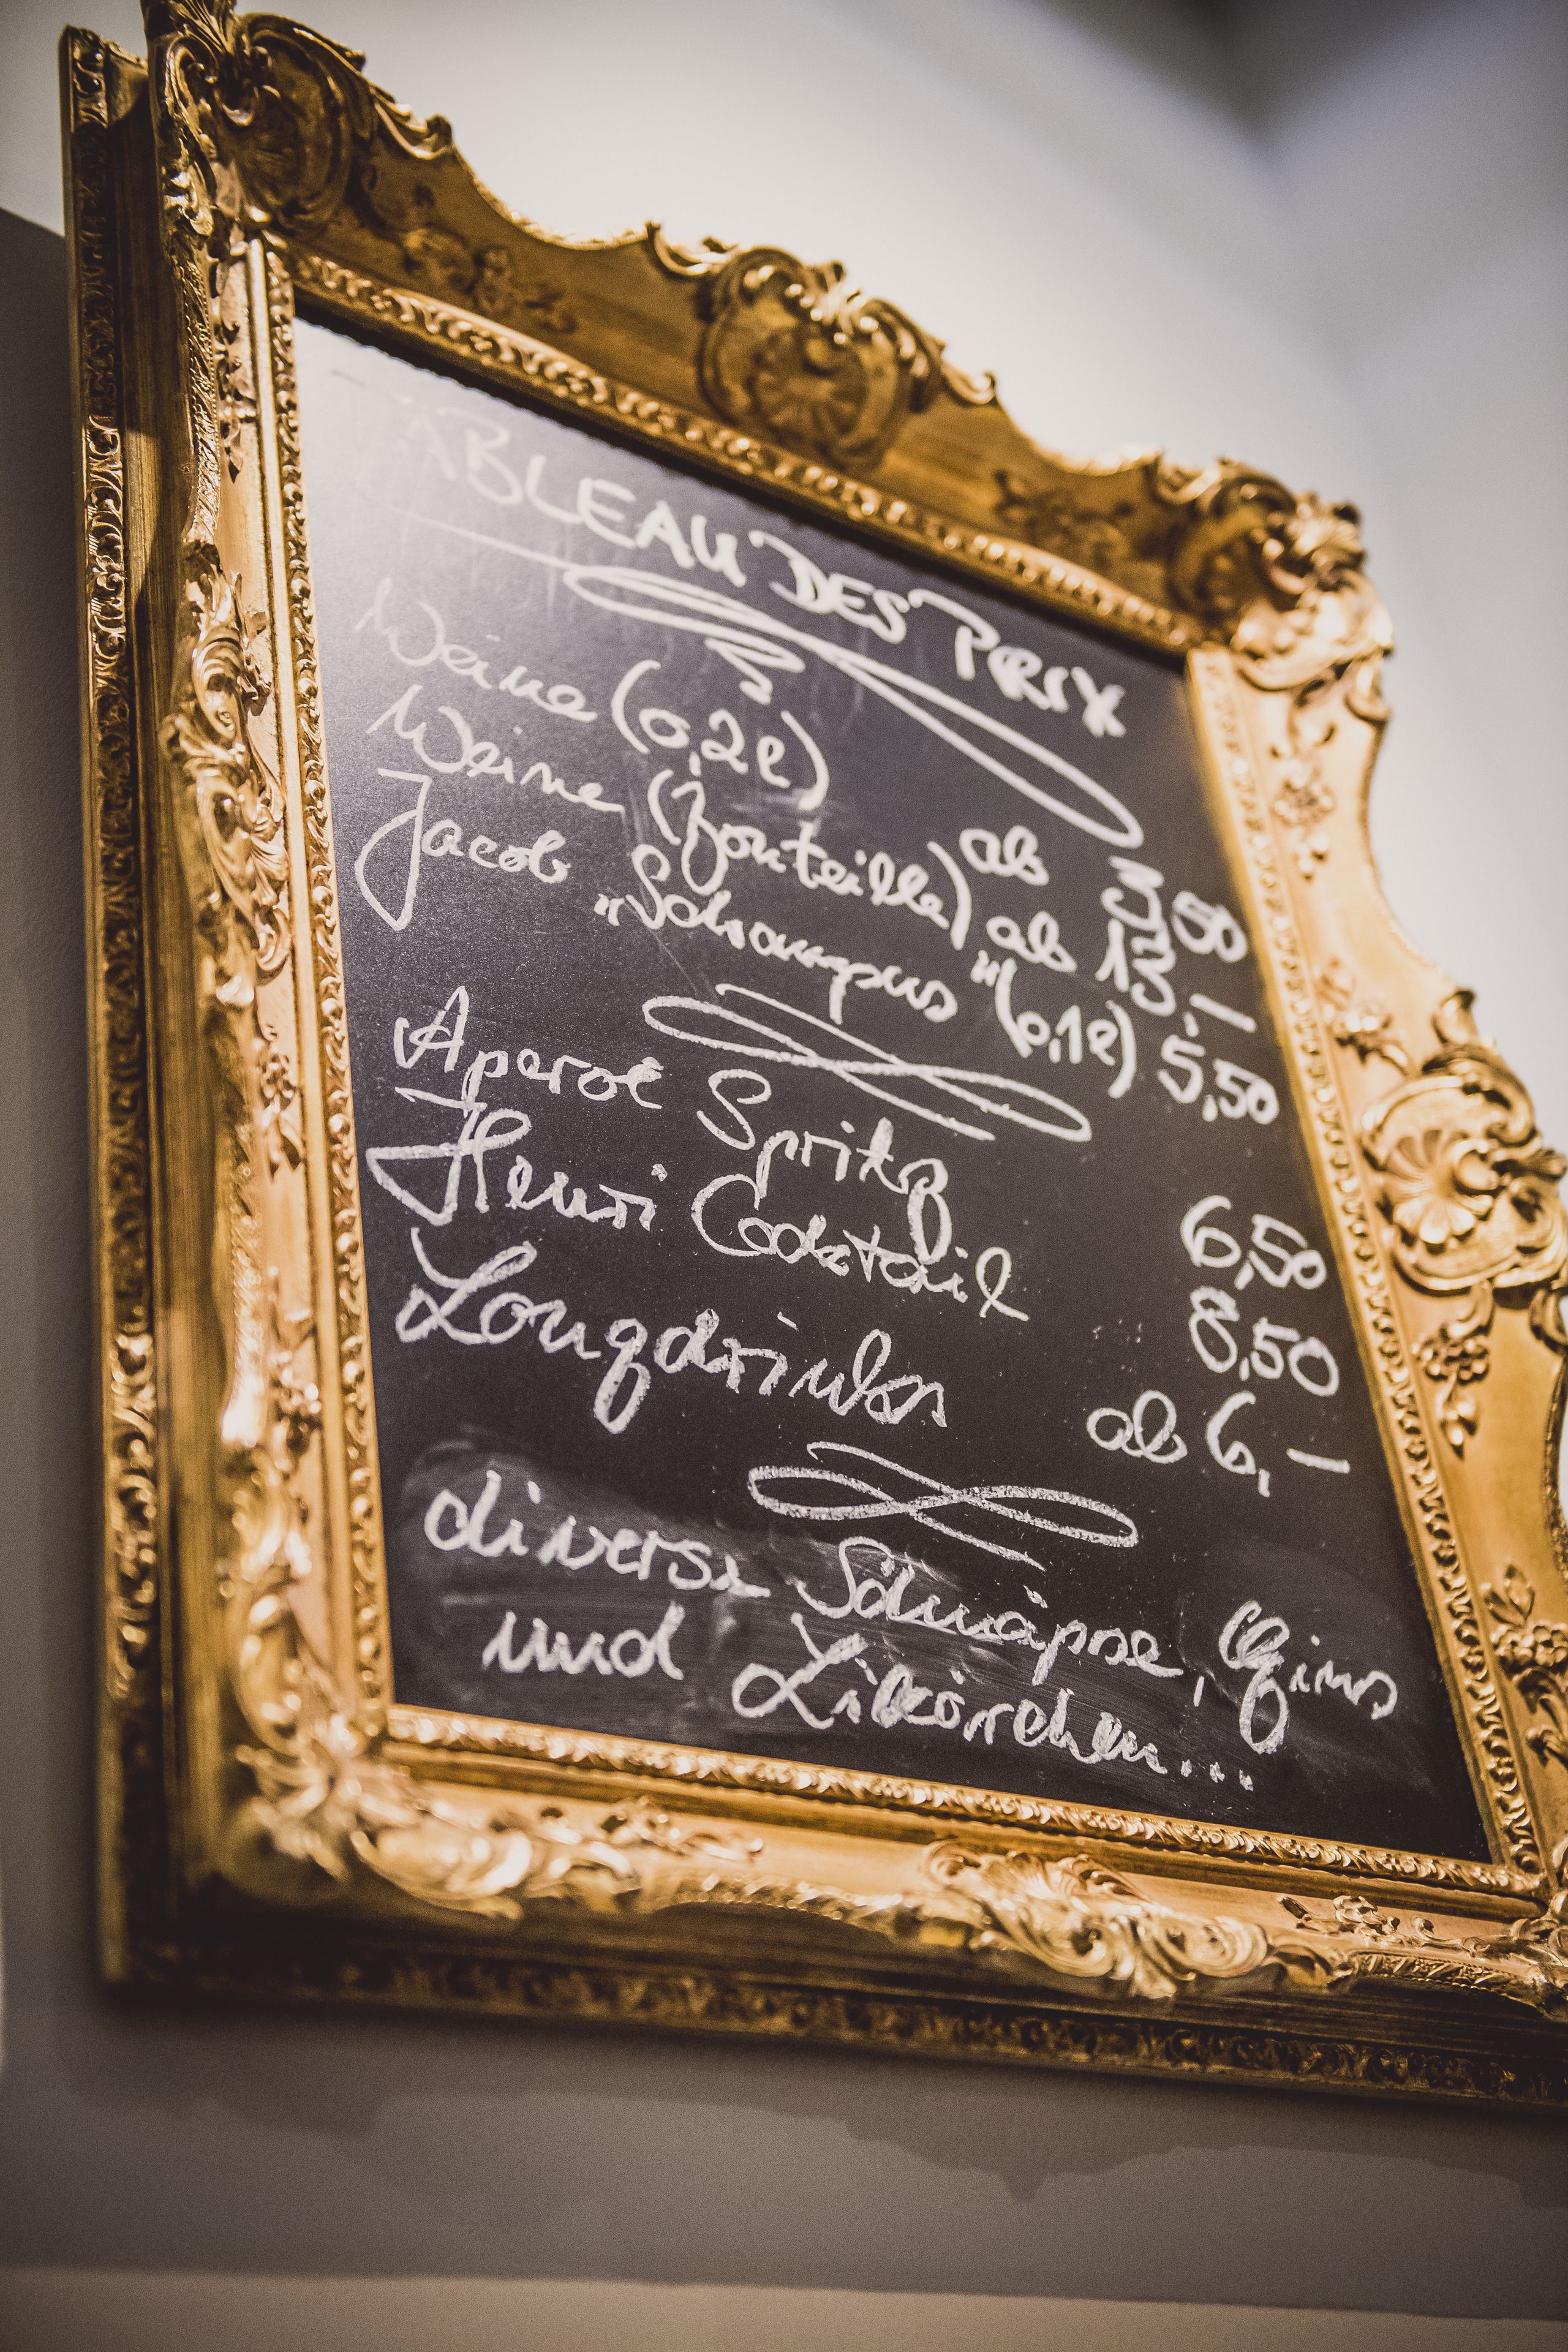 TABLEAU DES PRIX
Weine (0,2l) ab 3,50
Weine (Bouteille) ab 13,–
Jacob „Schampus" (0,1l) 5,50
Aperol Spritz 6,50
Henri Cocktail 8,50
Longdrinks ab 6,–
diverse Schnäpse, Gins
und Likörchen...